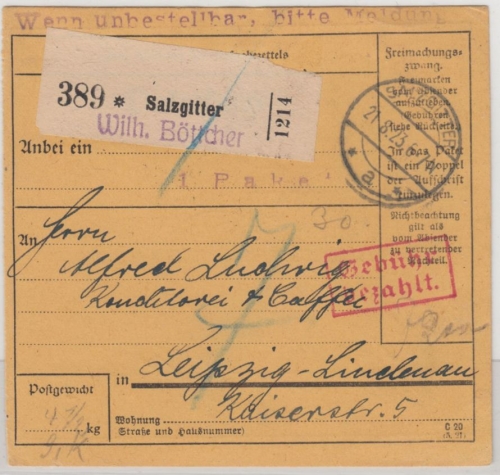 Wenn unbestellbar, bitte Meldung
389 * Salzgitter
1214
Wilh. Böttcher
Freimachungs-
zwang.
Freimarken
Gebühren
siehe Rückseite.
In das Paket
ist ein Doppel
der Aufschrift
einzulegen.
Nichtbeachtung
gilt als
vom Absender
zu vertretender
Nachteil.
a
Anbei ein
1 Paket
30.
An Herrn
Alfred Ludwig
Konditorei & Caffee
Gebühr
bezahlt.
in Leipzig-Lindenau
Kaiserstr. 5
Postgewicht
kg
Wohnung
(Straße und Hausnummer)
C 20